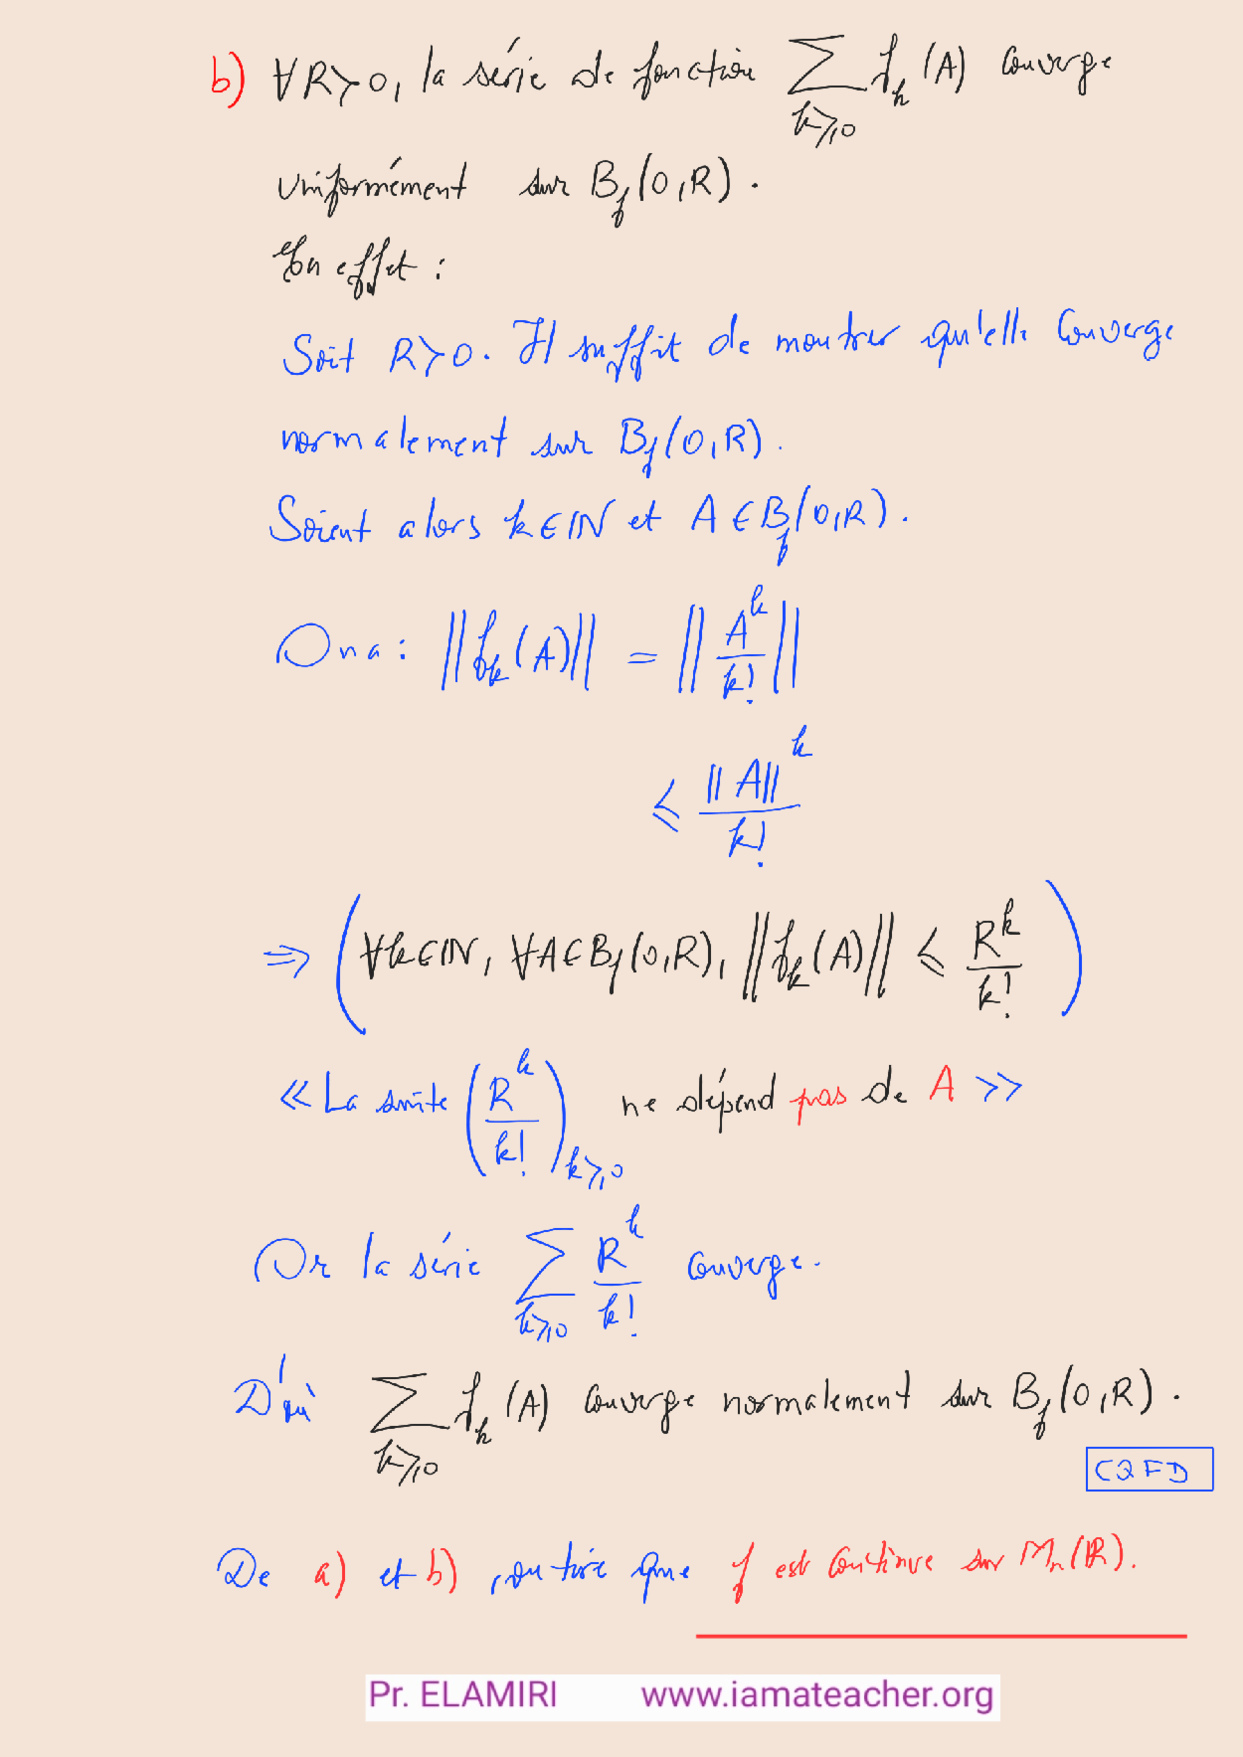 b) ∀R>0, la série de fonction ∑_{k≥0} f_k(A) converge
uniformément sur B_f(0,R).
En effet :
Soit R>0. Il suffit de montrer qu'elle converge
normalement sur B_f(0,R).
Soient alors k∈ℕ et A∈B_f(0,R).
On a : ‖f_k(A)‖ = ‖A^k/k!‖
≤ ‖A‖^k/k!
⇒ (∀k∈ℕ, ∀A∈B_f(0,R), ‖f_k(A)‖ ≤ R^k/k!)
≪ La suite (R^k/k!)_{k≥0} ne dépend pas de A ≫
Or la série ∑_{k≥0} R^k/k! converge.
D'où ∑_{k≥0} f_k(A) converge normalement sur B_f(0,R).
CQFD
De a) et b), on tire que f est continue sur M_n(ℝ).
Pr. ELAMIRI www.iamateacher.org